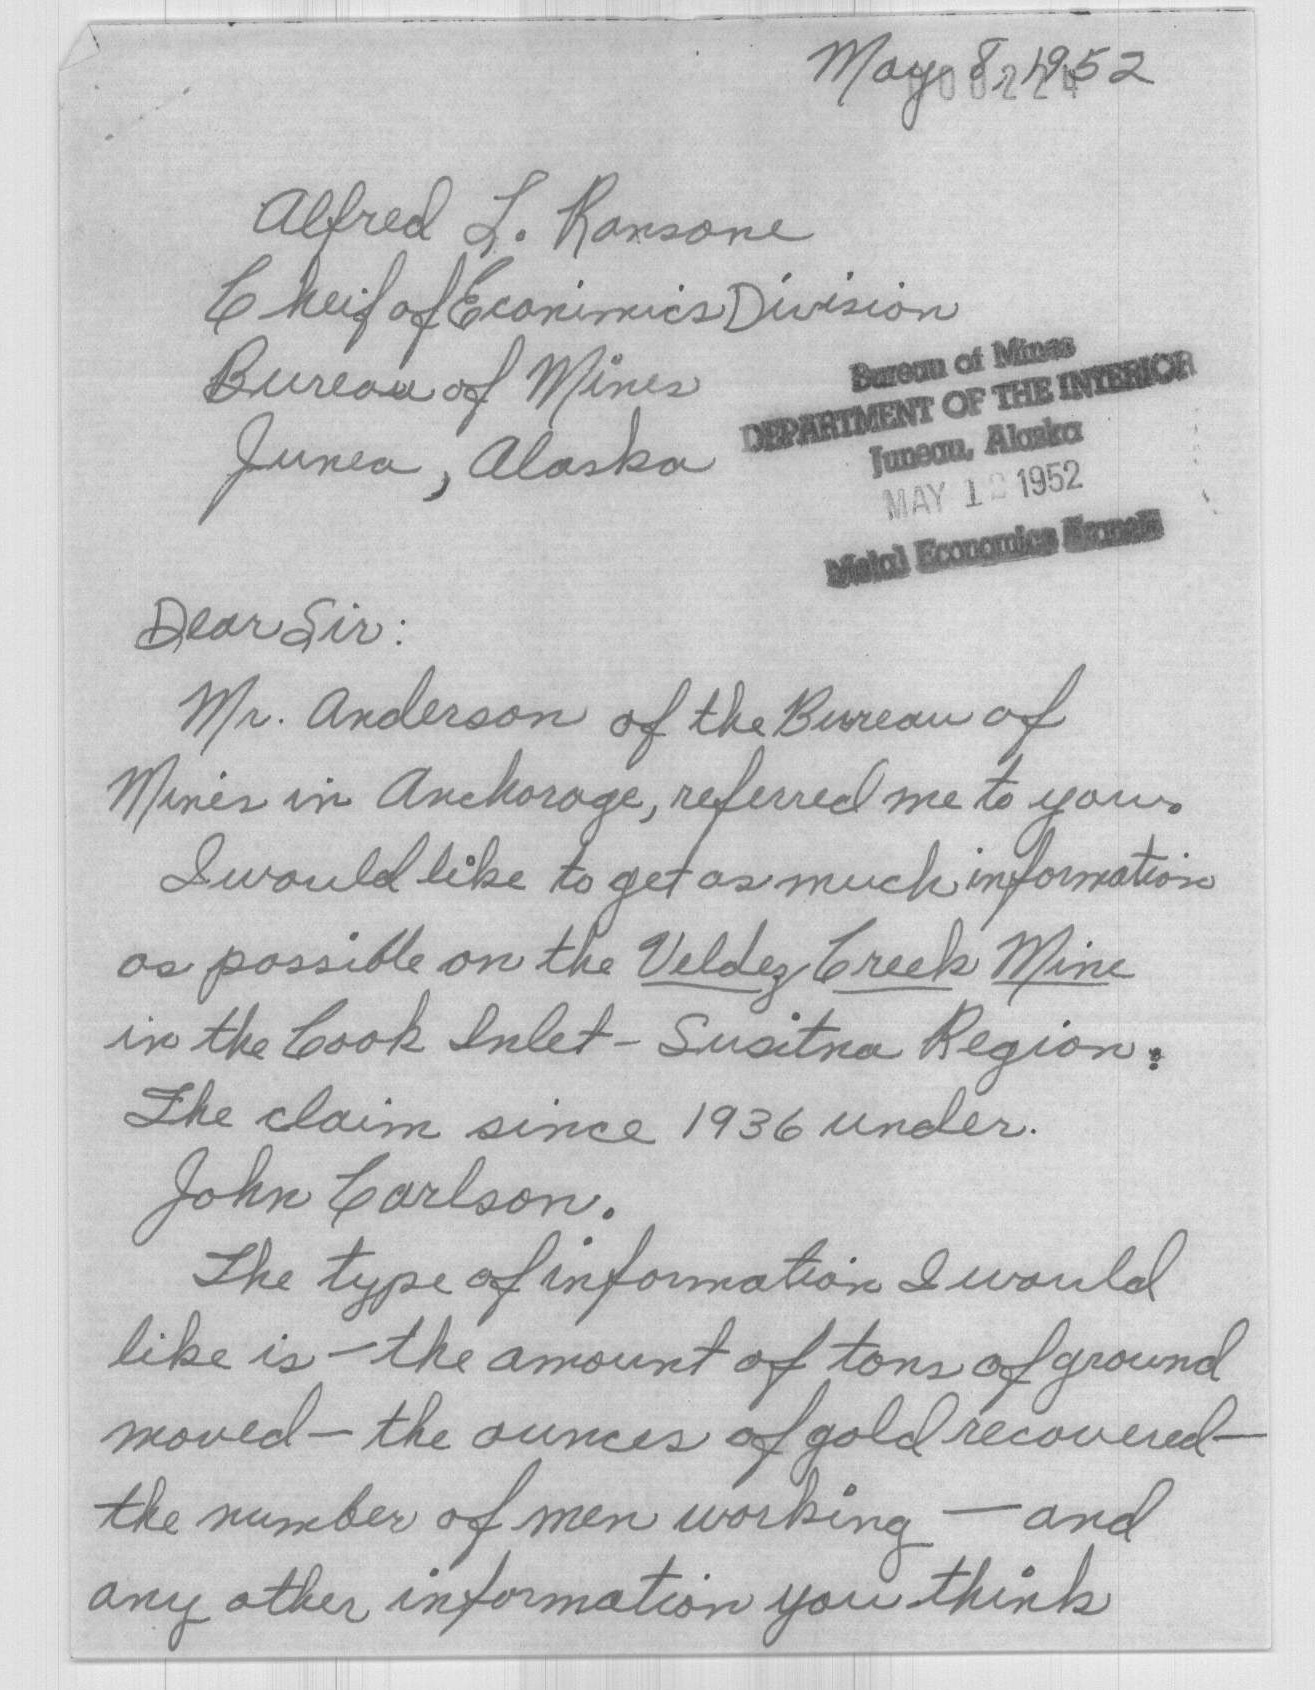 May 8, 1952
000224
Alfred L. Ransone
Cheif of Econimics Division
Bureau of Mines
Junea, Alaska
Bureau of Mines
DEPARTMENT OF THE INTERIOR
Juneau, Alaska
MAY 12 1952
Metal Economics Branch
Dear Sir:
Mr. Anderson of the Bureau of
Mines in Anchorage, referred me to you.
I would like to get as much information
as possible on the Veldez Creek Mine
in the Cook Inlet - Susitna Region.
The claim since 1936 under.
John Carlson.
The type of information I would
like is - the amount of tons of ground
moved - the ounces of gold recovered -
the number of men working - and
any other information you think